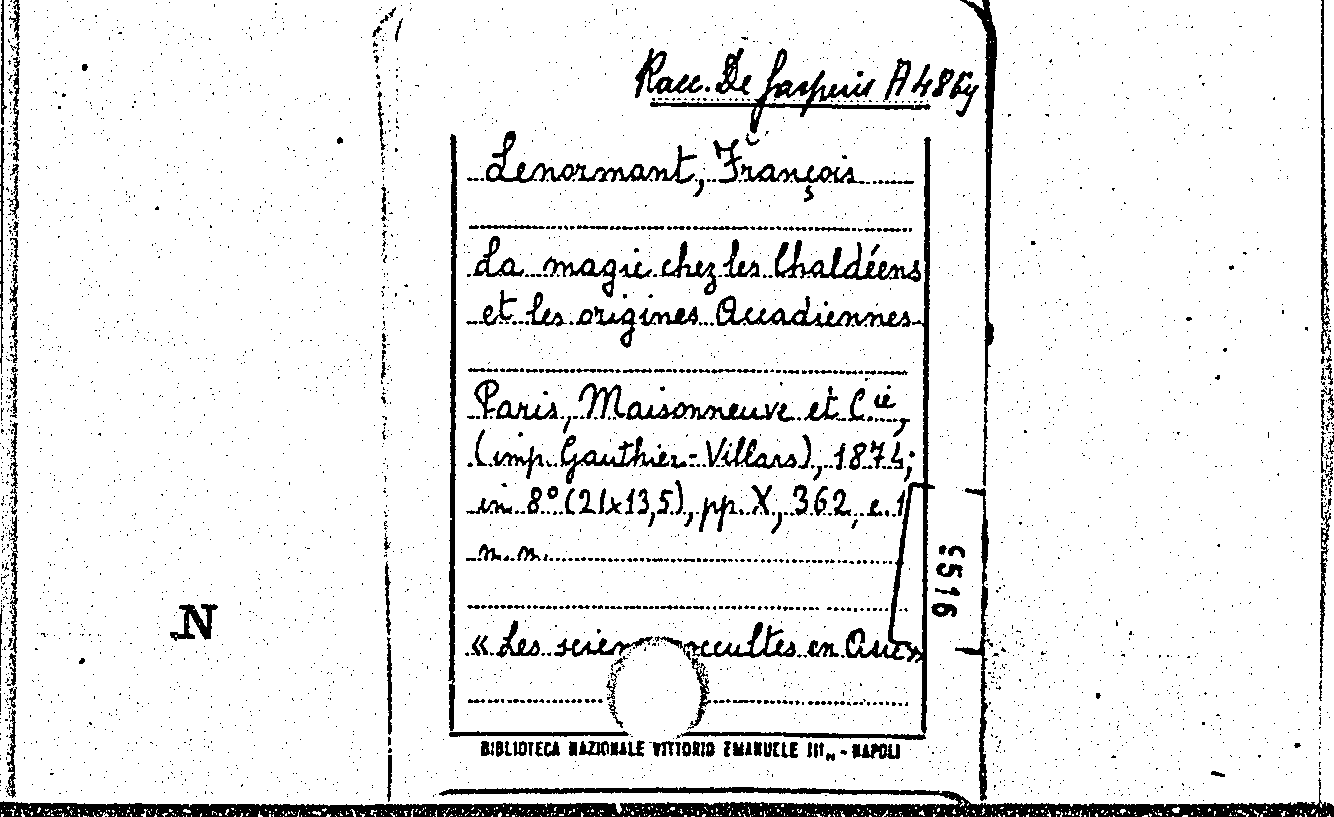 Racc. De Gasperis A 486
Lenormant, François
La magie chez les Chaldéens
et les origines Accadiennes
Paris, Maisonneuve et C.ie,
(imp. Gauthier-Villars), 1874;
in 8° (21x13,5), pp. X, 362, e. 1
n. n.
« Les occultes en Asie»
5516
N
BIBLIOTECA NAZIONALE VITTORIO EMANUELE III,, - NAPOLI